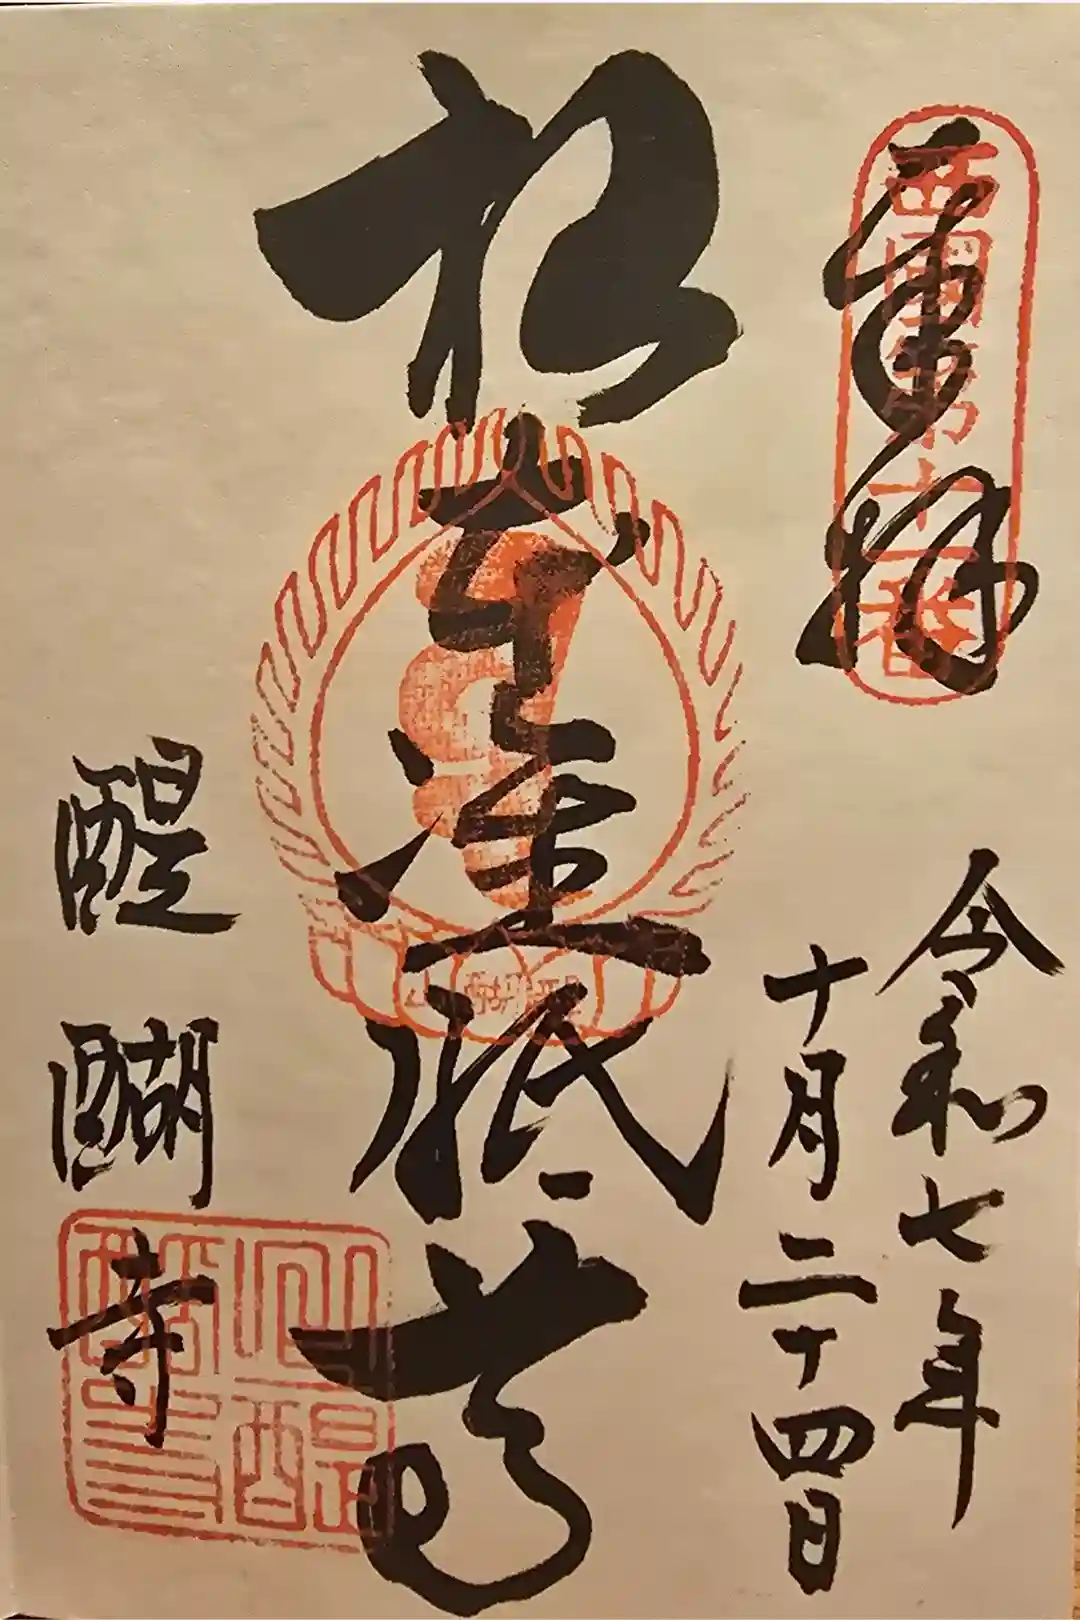 奉拝
西國第十一番
令和七年
十月二十四日
根本准胝尊
醍醐寺